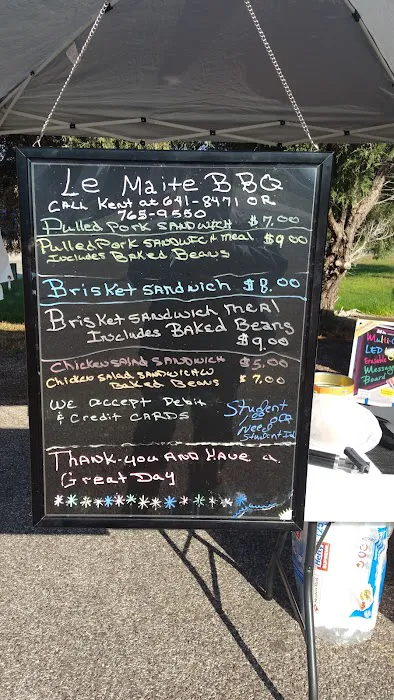 Le Maite BBQ
CALL Kent at 641-8471 OR
765-9550
Pulled Pork SANDWICH $7.00
Pulled Pork SANDWICH meal $9.00
Includes BAKED Beans
Brisket SANDWICH $8.00
Brisket SANDWICH meal
Includes BAKED Beans
$9.00
Chicken SALAD SANDWICH $5.00
Chicken SALAD SANDWICH W $7.00
BAKED Beans
We Accept Debit
& Credit CARDS
Student
Need
Student Id
THANK-YOU AND HAVE a
Great Day
Multi-C
LED
Erasable
Message
Board